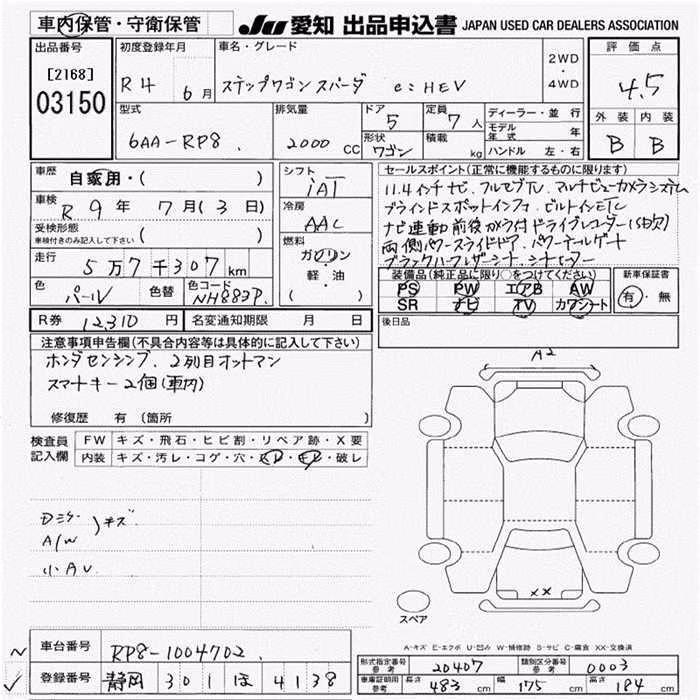 車内保管・守衛保管
JU 愛知 出品申込書 JAPAN USED CAR DEALERS ASSOCIATION
出品番号
[2168]
03150
初度登録年月
R4 6月
車名・グレード
ステップワゴン スパーダ e:HEV
2WD
・
4WD
評価点
4.5
外装 内装
B B
型式
6AA-RP8.
排気量
2000 CC
ドア
5
形状
ワゴン
定員
7人
積載
kg
ディーラー・並行
モデル年式 年
ハンドル 左・右
車歴
自家用・( )
車検
R 9年 7月(3日)
受検形態
車検付きのみ記入して下さい ( )
走行
5万7千307km
色
パール
色替
色コード
NH883P.
シフト
iAT
冷房
AAC
燃料
ガソリン
軽・油
( )
セールスポイント(正常に機能するものに限ります)
11.4インチナビ、フルセグTV、マルチビューカメラシステム
ブラインドスポットインフォ、ビルトインETC
ナビ連動前後カメラ付ドライブレコーダー(SD欠)
両側パワースライドドア、パワーテールゲート
ブラックハーフレザーシート、シートヒーター
装備品(純正品に限り○をつけてください)
PS PW エアB AW
SR ナビ TV カワシート
新車保証書
有・無
後日品
R券 12,310 円
名変通知期限 月 日
注意事項申告欄(不具合内容等は具体的に記入して下さい)
ホンダセンシング、2列目オットマン
スマートキー2個(車内)
修復歴 有(箇所 )
検査員
記入欄
FW キズ・飛石・ヒビ割・リペア跡・X要
内装 キズ・汚レ・コゲ・穴・スレ・キレ・破レ
Dミラー
A/W
キズ
小AU
A2
XX
スペア
A-キズ E-エクボ U-凹み W-補修跡 S-サビ C-腐食 XX-交換済
車台番号
RP8-1004702.
登録番号
静岡 301 ほ 4138
形式指定番号
参考
20407
類別区分番号
参考
0003
車庫証明用
参考
長さ 483 cm 幅 175 cm 高さ 184 cm